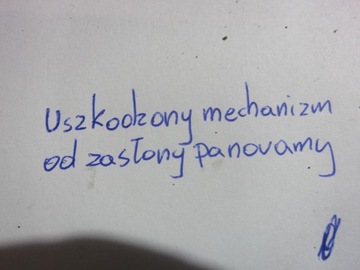 Uszkodzony mechanizm
od zasłony panovamy